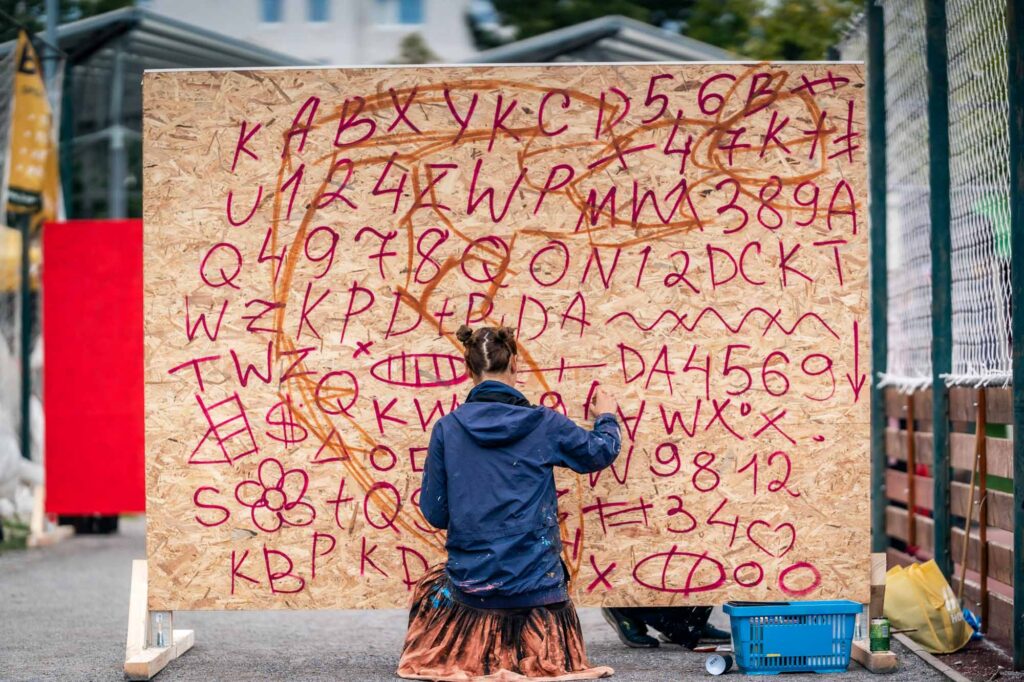 K A B X Y K C D 5 6 B ‡
U 1 2 4 Z W P M W A 3 8 9 A
Q 4 9 7 8 Q O N 1 2 D C K T
W Z K P D + P D A
T W Z × + D A 4 5 6 9 ↓
$ Q K W W X ° ×
9 8 1 2
S + Q 3 4 ♡
K B P K D × O O